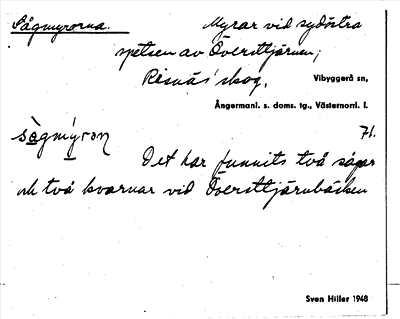 Sågmyrorna. Myrar vid sydöstra
spetsen av Översttjärnen;
Risnäs' skog. Vibyggerå sn,
Ångermanl. s. doms. tg., Västernorrl. l.
sågmýran 71.
Det har funnits två sågar
och två kvarnar vid Översttjärnbäcken
Sven Hiller 1948